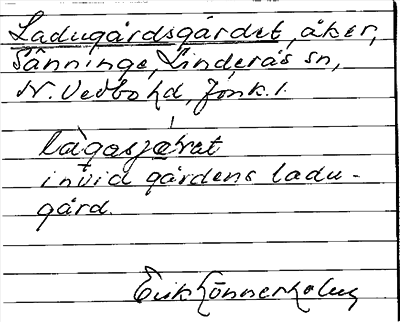 Ladugårdsgärdet, åker,
Sänninge, Linderås sn,
N. Vedbo hd, Jönk. l.
lagasjærat
invid gårdens ladu-
gård.
Erik Lönnerholm